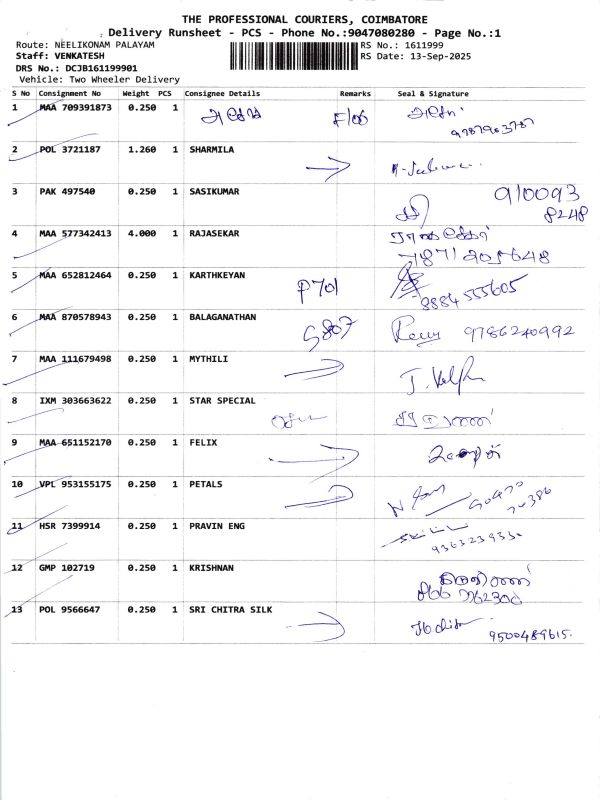 THE PROFESSIONAL COURIERS, COIMBATORE
Delivery Runsheet - PCS - Phone No.:9047080280 - Page No.:1
Route: NEELIKONAM PALAYAM
RS No.: 1611999
Staff: VENKATESH
RS Date: 13-Sep-2025
DRS No.: DCJB161199901
Vehicle: Two Wheeler Delivery
S No Consignment No Weight PCS Consignee Details Remarks Seal & Signature
1 MAA 709391873 0.250 1
9787963787
2 POL 3721187 1.260 1 SHARMILA
3 PAK 497540 0.250 1 SASIKUMAR 910093
8248
4 MAA 577342413 4.000 1 RAJASEKAR
7871205648
5 MAA 652812464 0.250 1 KARTHKEYAN P701
8884555605
6 MAA 870578943 0.250 1 BALAGANATHAN S807 9786240992
7 MAA 111679498 0.250 1 MYTHILI
8 IXM 303663622 0.250 1 STAR SPECIAL
9 MAA 651152170 0.250 1 FELIX
10 VPL 953155175 0.250 1 PETALS
11 HSR 7399914 0.250 1 PRAVIN ENG
12 GMP 102719 0.250 1 KRISHNAN
13 POL 9566647 0.250 1 SRI CHITRA SILK
9500489615.